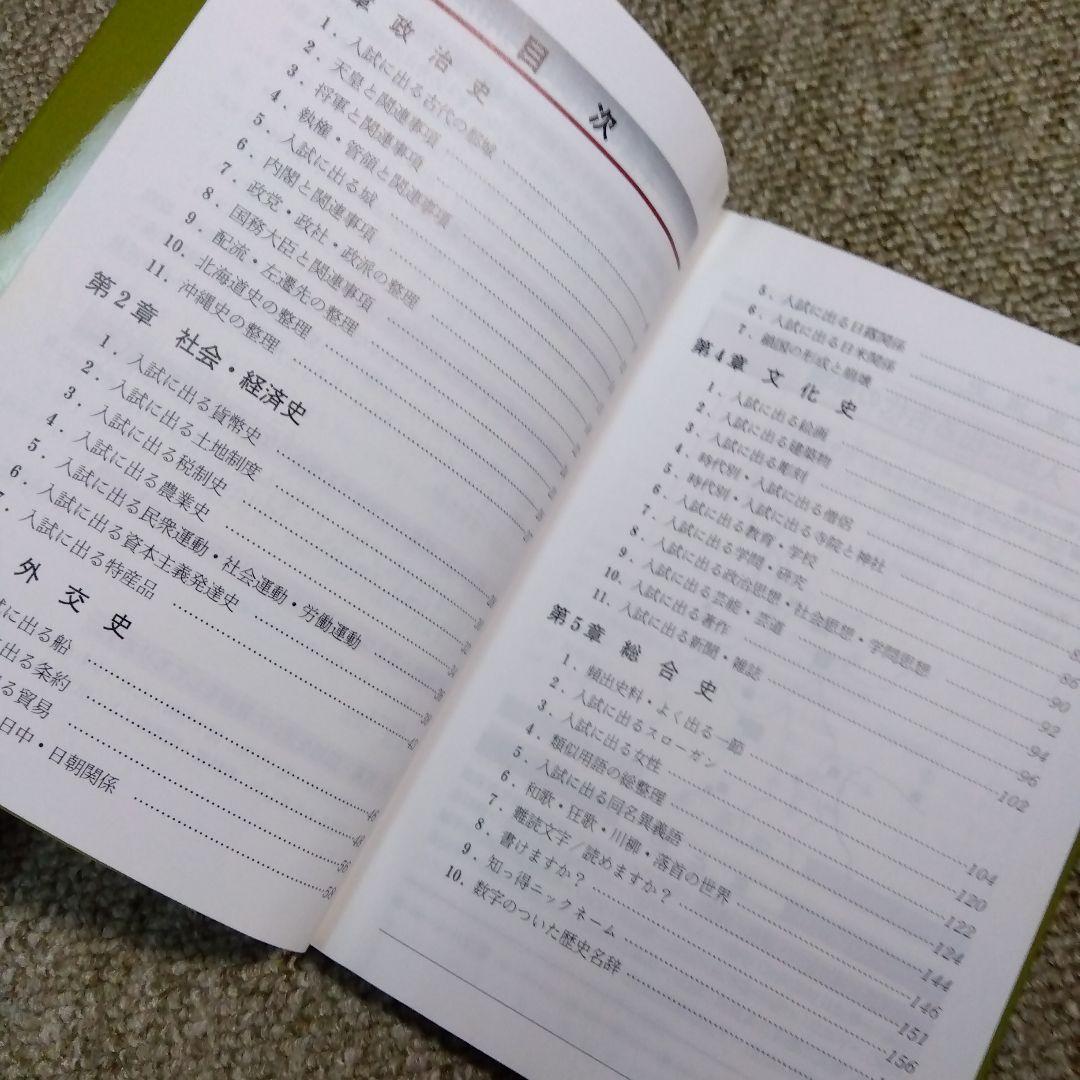 目次
章 政治史
1. 入試に出る古代の都城
2. 天皇と関連事項
3. 将軍と関連事項
4. 執権・管領と関連事項
5. 入試に出る城
6. 内閣と関連事項
7. 政党・政社・政派の整理
8. 国務大臣と関連事項
9. 配流・左遷先の整理
10. 北海道史の整理
11. 沖縄史の整理
第2章 社会・経済史
1. 入試に出る貨幣史
2. 入試に出る土地制度
3. 入試に出る税制史
4. 入試に出る農業史
5. 入試に出る民衆運動・社会運動・労働運動
6. 入試に出る資本主義発達史
入試に出る特産品
外交史
に出る船 46
出る条約 48
る貿易 56
日中・日朝関係 58
5. 入試に出る日露関係
6. 入試に出る日米関係
7. 鎖国の形成と崩壊
第4章 文化史
1. 入試に出る絵画
2. 入試に出る建築物
3. 入試に出る彫刻
4. 時代別・入試に出る僧侶
5. 時代別・入試に出る寺院と神社
6. 入試に出る教育・学校
7. 入試に出る学問・研究
8. 入試に出る政治思想・社会思想・学問思想 86
9. 入試に出る芸能・芸道 90
10. 入試に出る著作 92
11. 入試に出る新聞・雑誌 94
第5章 総合史
1. 頻出史料・よく出る一節 96
2. 入試に出るスローガン 102
3. 入試に出る女性 104
4. 類似用語の総整理 120
5. 入試に出る同名異義語 122
6. 和歌・狂歌・川柳・落首の世界 124
7. 難読文字/読めますか? 144
8. 書けますか? 146
9. 知っ得ニックネーム 151
10. 数字のついた歴史名辞 156